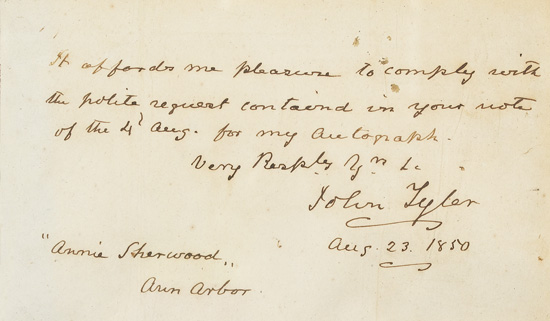 It affords me pleasure to comply with
the polite request containd in your note
of the 4' Aug. for my Autograph.
Very Resply Yrs &c.
John Tyler
Aug. 23. 1850
"Annie Sherwood„
Ann Arbor.